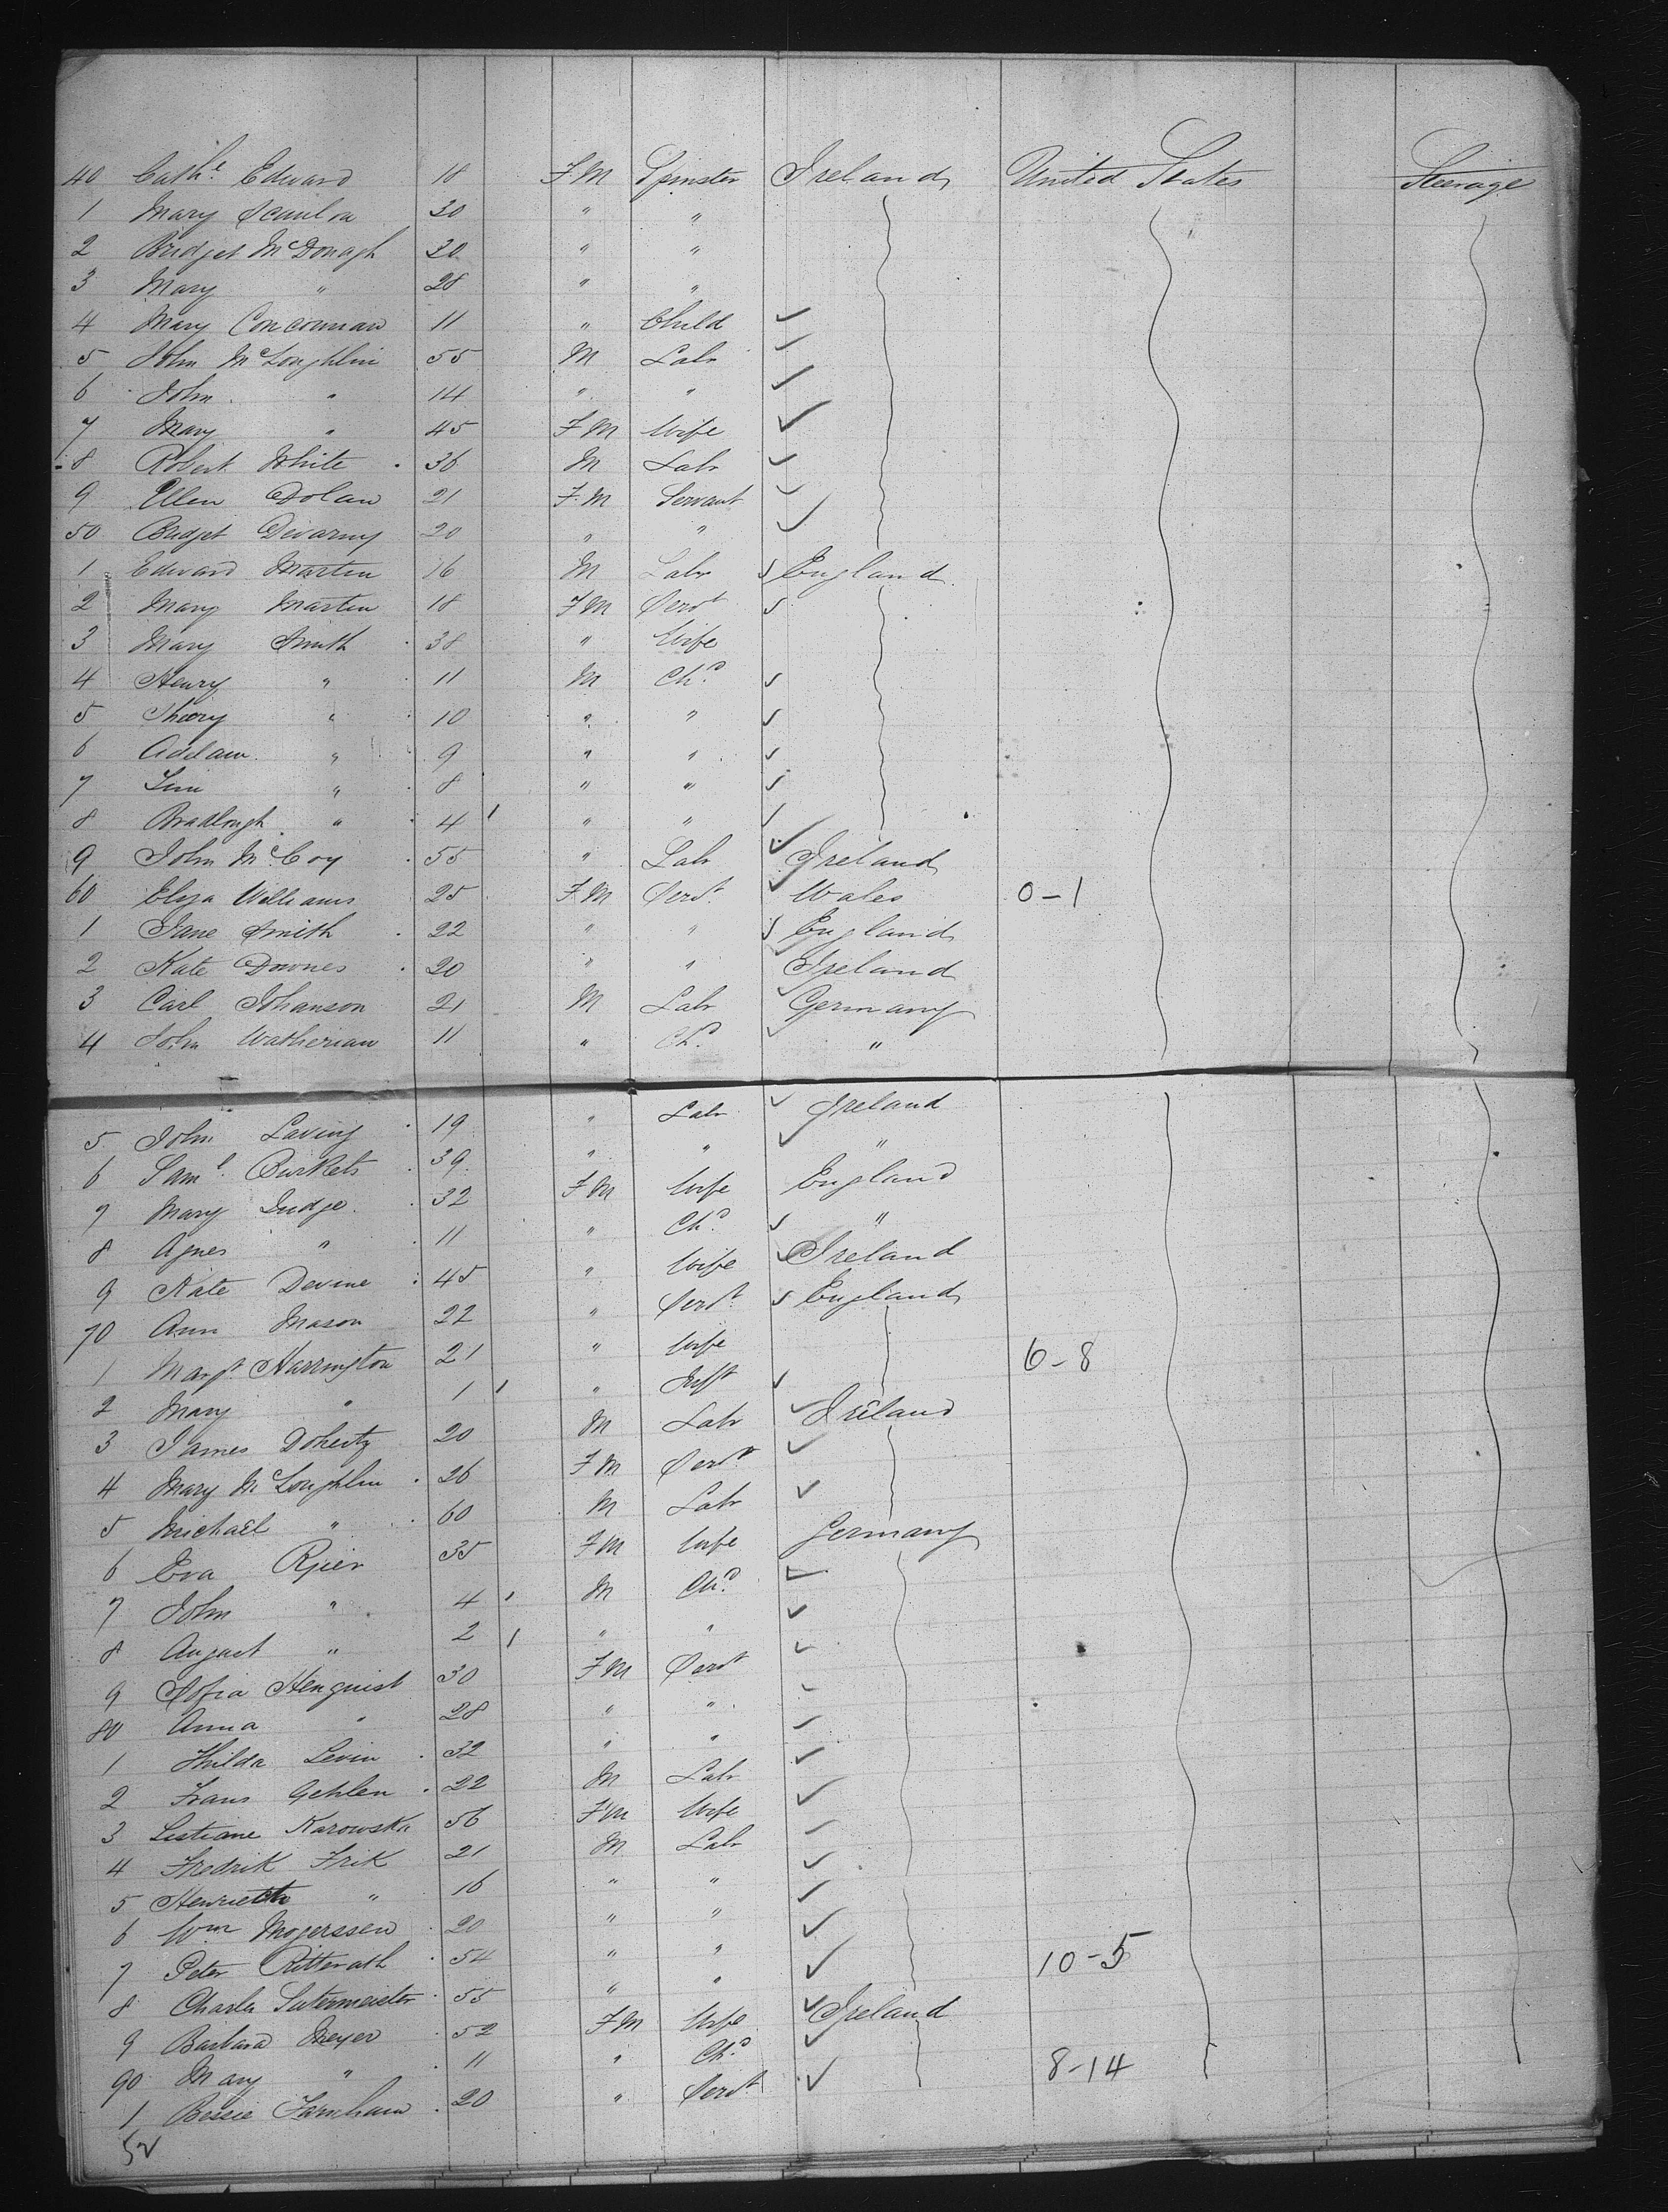 40 Cathe Edward 18 FM Spinster Ireland United States Steerage
1 Mary Scanlon 30 " "
2 Bridget McDonagh 30 " "
3 Mary " 28 " "
4 Mary Concannan 11 " Child
5 John McLoughlin 55 M Labr
6 John " 14 " "
7 Mary " 45 FM Wife
8 Robert White 36 M Labr
9 Ellen Dolan 21 FM Servant
50 Bridget Devarny 20 " "
1 Edward Martin 16 M Labr England
2 Mary Martin 18 FM Servt
3 Mary Smith 38 " Wife
4 Henry " 11 M Chd
5 " 10 " "
6 Addam " 9 " "
7 Jim " 8 " "
8 Bradlough " 4 " "
9 John McCoy 55 " Labr Ireland
60 Eliza Williams 25 FM Servt Wales 0-1
1 Jane Smith 22 " " England
2 Kate Downes 20 " " Ireland
3 Carl Johanson 21 M Labr Germany
4 John Watherian 11 " Chd "
5 John Laving 19 " Labr Ireland
6 Saml Burkets 39 " " "
7 Mary Judge 32 FM Wife England
8 Agnes " 11 " Chd "
9 Kate Devine 45 " Wife Ireland
70 Ann Mason 22 " Servt England
1 Margt Harrington 21 " Wife 6-8
2 Mary " 1 " Inft
3 James Doherty 20 M Labr Ireland
4 Mary McLoughlin 26 FM Servt
5 Michael " 60 M Labr
6 Eva 35 FM Wife Germany
7 John " 4 M Chd
8 August " 2 " "
9 Sofia Stenquist 30 FM Servt
80 Anna " 28 " "
1 Hilda Levin 32 " "
2 Frans Gehlen 22 M Labr
3 Karowska 56 FM Wife
4 Fredrik Frik 21 M Labr
5 Henrietth " 16 " "
6 Wm Mogerssen 20 " "
7 Peter Ritterath 54 " " 10-5
8 Charles Sutermeister 55 " "
9 Barbara Meyer 52 FM Wife Ireland
90 Mary " 11 " Chd 8-14
1 Bessie Farnham 20 " Servt
52